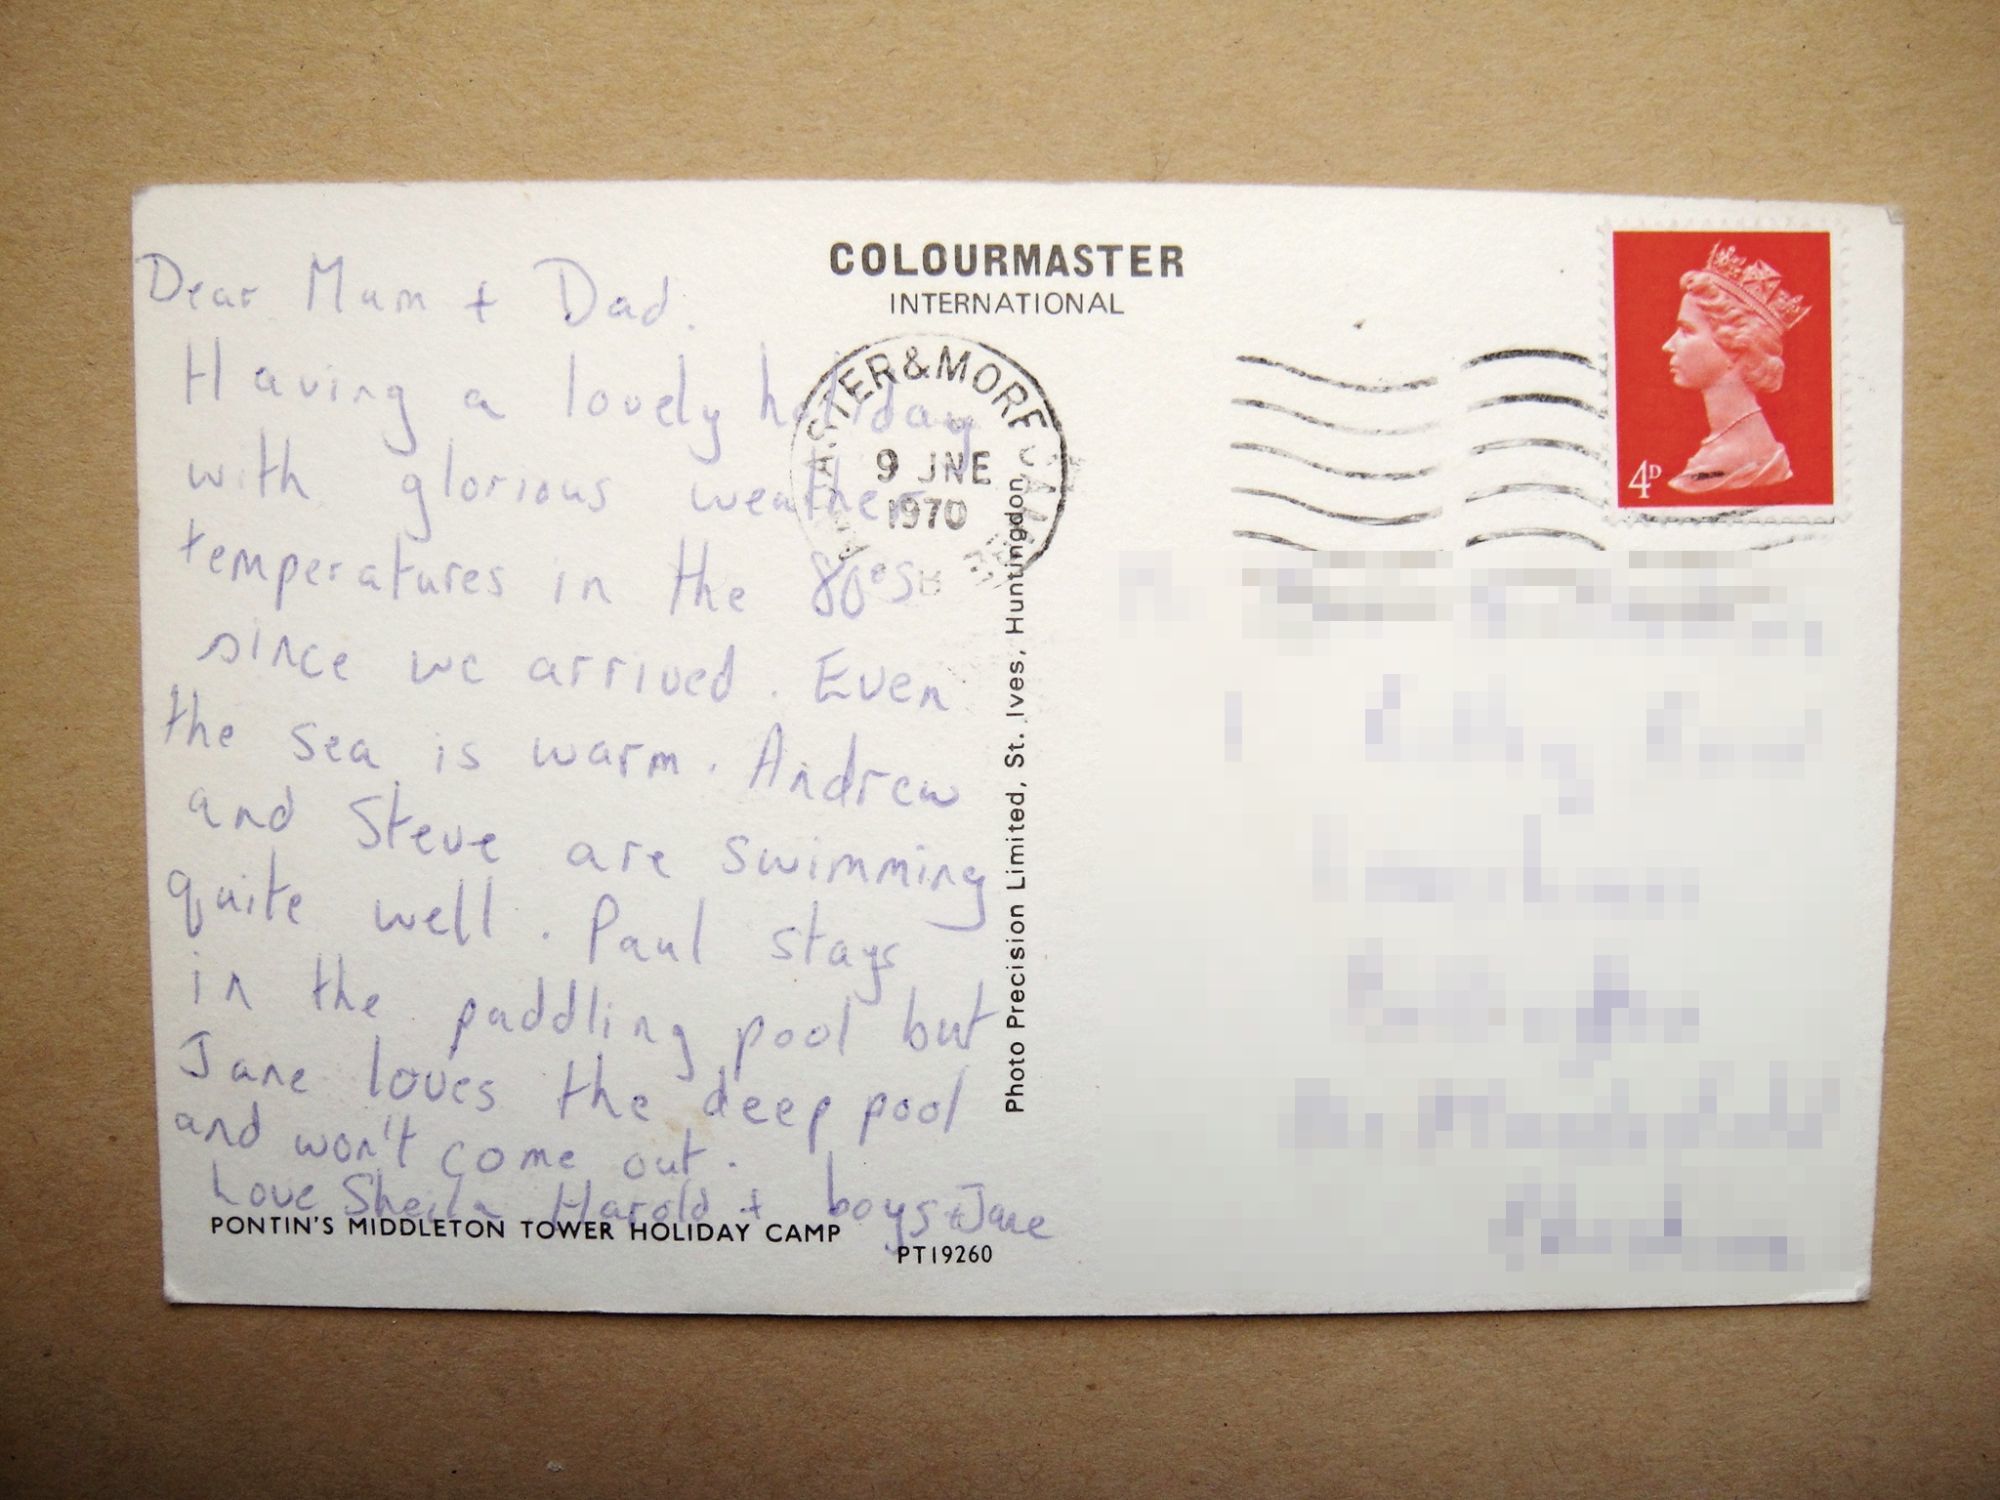 Dear Mum + Dad.
Having a lovely holiday
with glorious weather
temperatures in the 80es
since we arrived. Even
the sea is warm. Andrew
and Steve are swimming
quite well. Paul stays
in the paddling pool but
Jane loves the deep pool
and won't come out.
Love Sheila Harold + boys + Jane
PONTIN'S MIDDLETON TOWER HOLIDAY CAMP
PT19260
COLOURMASTER
INTERNATIONAL
ASTER & MORE
9 JNE
1970
Photo Precision Limited, St. Ives, Huntingdon
4D